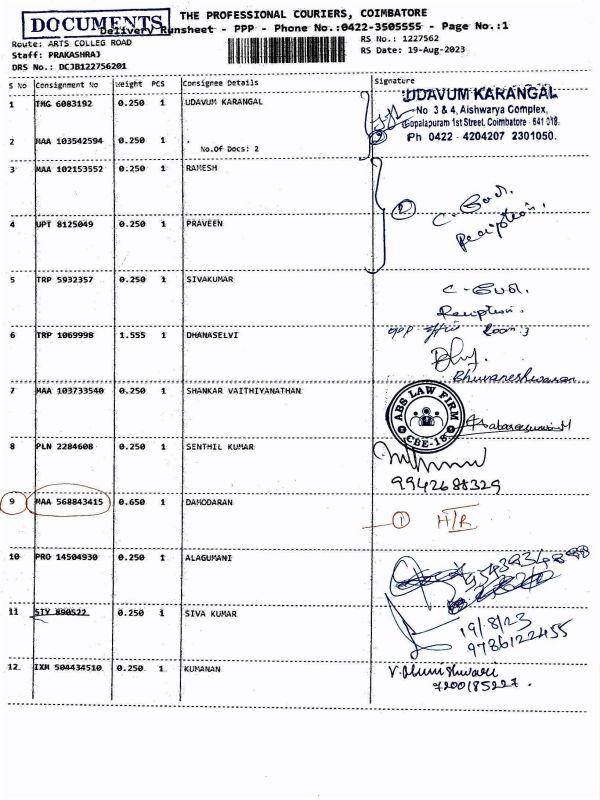 DOCUMENTS
THE PROFESSIONAL COURIERS, COIMBATORE
Delivery Runsheet - PPP - Phone No.:0422-3505555 - Page No.:1
Route: ARTS COLLEG ROAD
RS No.: 1227562
Staff: PRAKASHRAJ
RS Date: 19-Aug-2023
DRS No.: DCJB122756201
S No Consignment No Weight PCS Consignee Details Signature
1 TMG 6083192 0.250 1 UDAVUM KARANGAL
UDAVUM KARANGAL
No 3 & 4, Aishwarya Complex,
Gopalapuram 1st Street, Coimbatore - 641 018.
Ph 0422 - 4204207 2301050.
2 MAA 103542594 0.250 1 .
No.Of Docs: 2
3 MAA 102153552 0.250 1 RAMESH
2
Reception.
4 UPT 8125049 0.250 1 PRAVEEN
5 TRP 5932357 0.250 1 SIVAKUMAR
Reception.
6 TRP 1069998 1.555 1 DHANASELVI
Room:3
Bhuvaneshwaran
7 MAA 103733540 0.250 1 SHANKAR VAITHIYANATHAN
ABS LAW FIRM
CBE-18
8 PLN 2284608 0.250 1 SENTHIL KUMAR
9942688329
9 MAA 568843415 0.650 1 DAMODARAN
1 H/R
10 PRO 14504930 0.250 1 ALAGUMANI
11 STY 890522 0.250 1 SIVA KUMAR
19/8/23
9786122455
12 IXM 504434510 0.250 1 KUMANAN
7200185227.